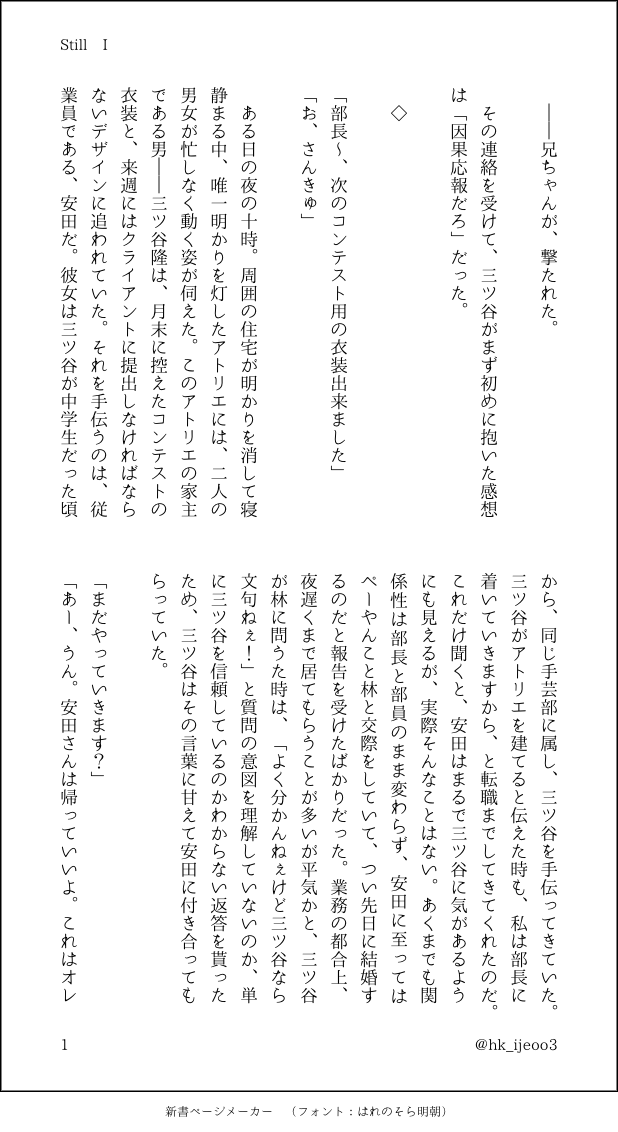 Still　I
――兄ちゃんが、撃たれた。
その連絡を受けて、三ツ谷がまず初めに抱いた感想
は「因果応報だろ」だった。
◇
「部長～、次のコンテスト用の衣装出来ました」
「お、さんきゅ」
ある日の夜の十時。周囲の住宅が明かりを消して寝
静まる中、唯一明かりを灯したアトリエには、二人の
男女が忙しなく動く姿が伺えた。このアトリエの家主
である男――三ツ谷隆は、月末に控えたコンテストの
衣装と、来週にはクライアントに提出しなければなら
ないデザインに追われていた。それを手伝うのは、従
業員である、安田だ。彼女は三ツ谷が中学生だった頃
から、同じ手芸部に属し、三ツ谷を手伝ってきていた。
三ツ谷がアトリエを建てると伝えた時も、私は部長に
着いていきますから、と転職までしてきてくれたのだ。
これだけ聞くと、安田はまるで三ツ谷に気があるよう
にも見えるが、実際そんなことはない。あくまでも関
係性は部長と部員のまま変わらず、安田に至っては
ぺーやんこと林と交際をしていて、つい先日に結婚す
るのだと報告を受けたばかりだった。業務の都合上、
夜遅くまで居てもらうことが多いが平気かと、三ツ谷
が林に問うた時は、「よく分かんねぇけど三ツ谷なら
文句ねぇ！」と質問の意図を理解していないのか、単
に三ツ谷を信頼しているのかわからない返答を貰った
ため、三ツ谷はその言葉に甘えて安田に付き合っても
らっていた。
「まだやっていきます？」
「あー、うん。安田さんは帰っていいよ。これはオレ
1
@hk_ijeoo3
新書ページメーカー　（フォント：はれのそら明朝）